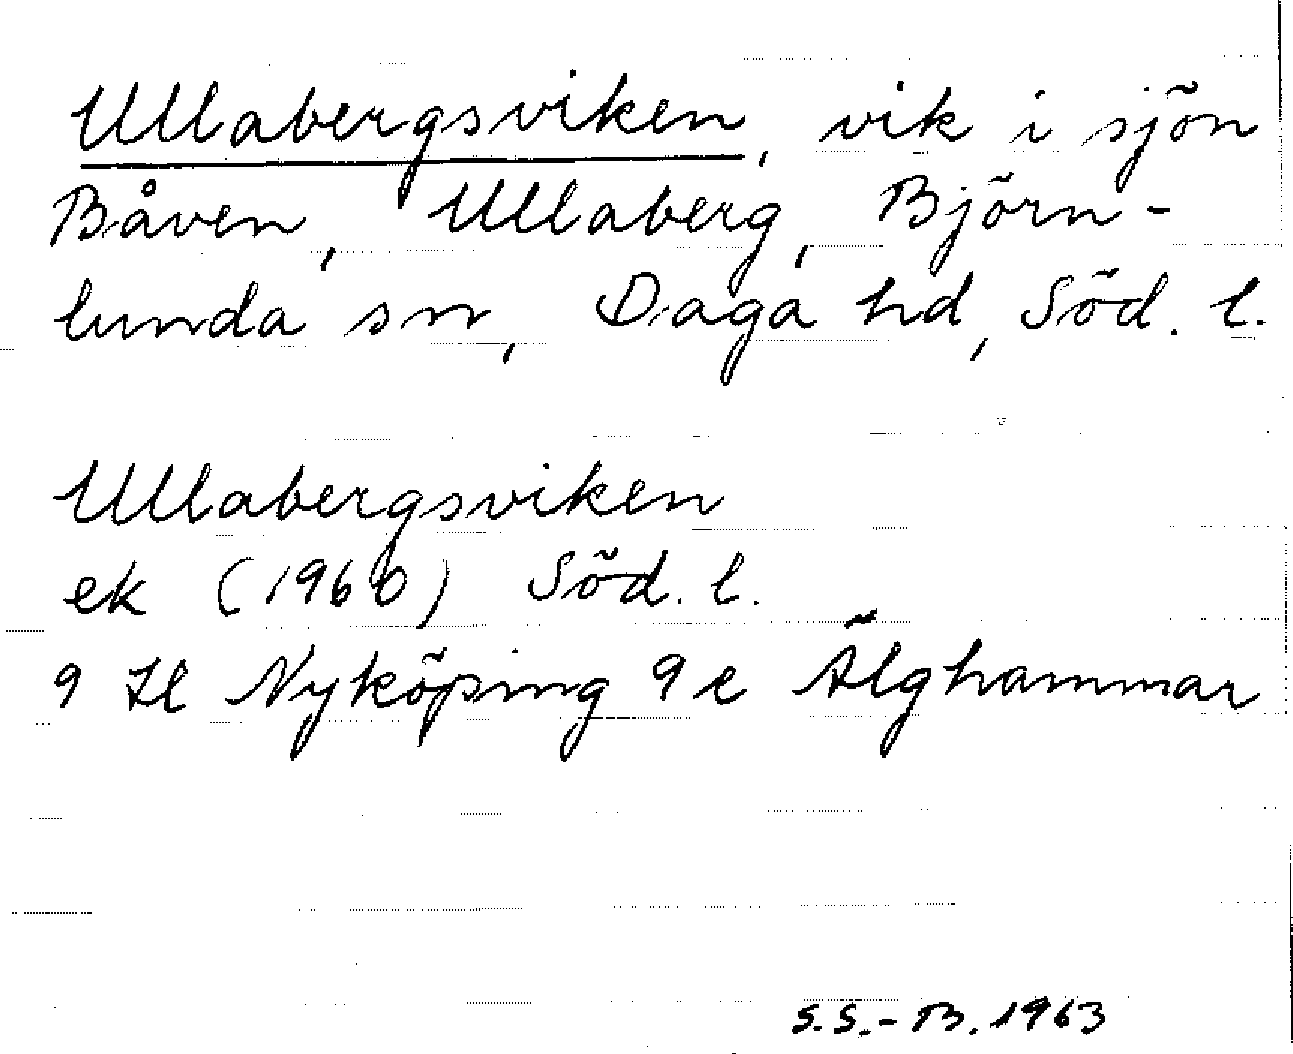 Ullabergsviken, vik i sjön
Båven, Ullaberg, Björn-
lunda sn, Daga hd, Söd. l.
Ullabergsviken
ek (1960) Söd. l.
9 Nyköping 9 e Älghammar
S.S.-B. 1963